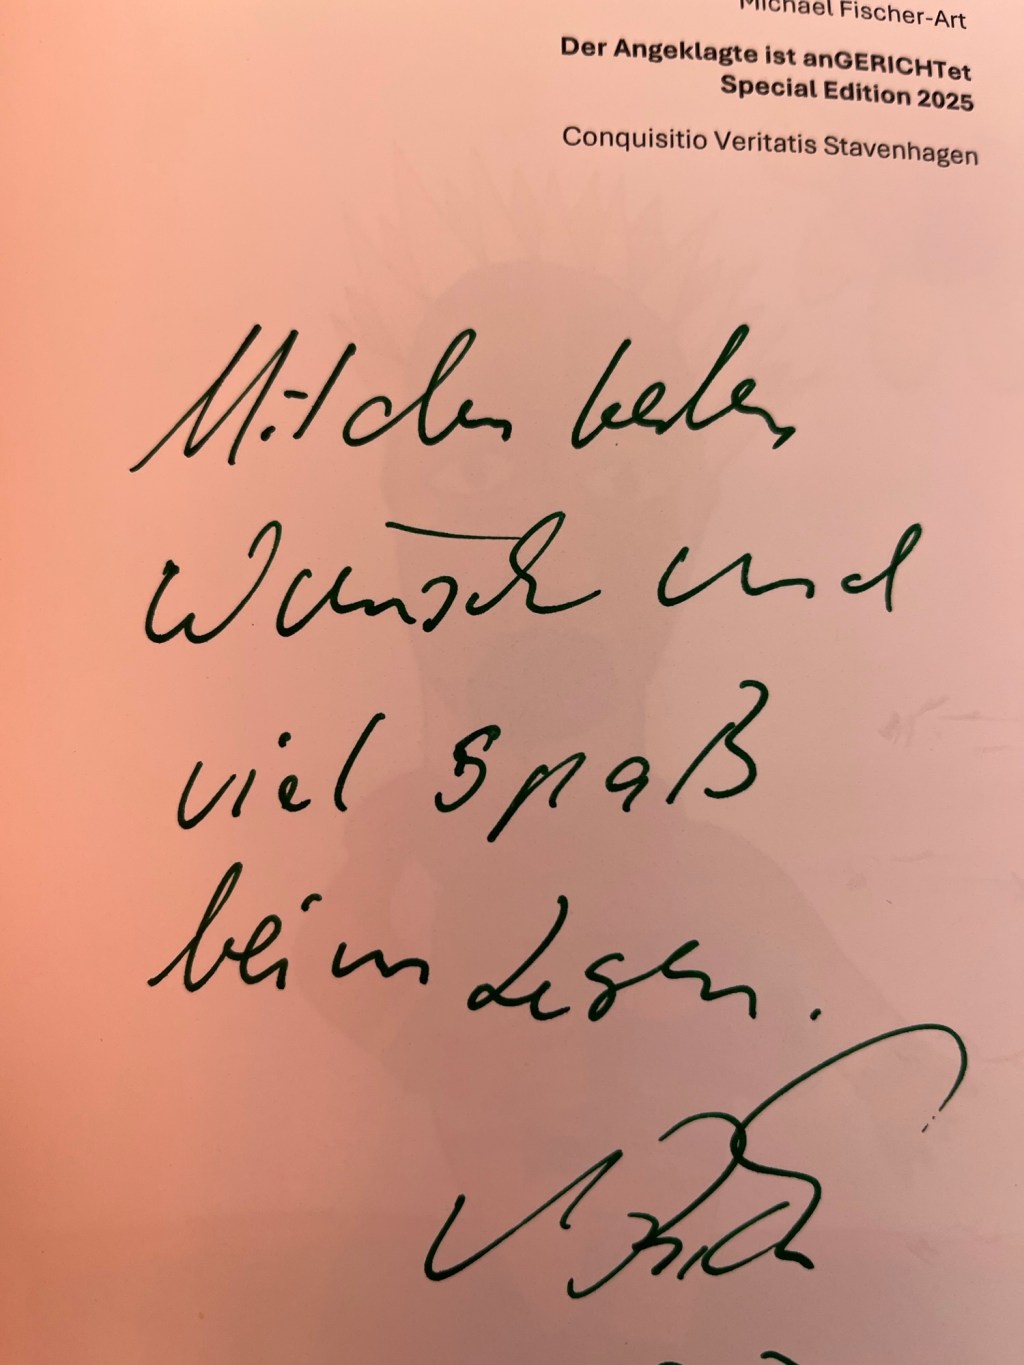 Michael Fischer-Art
Der Angeklagte ist anGERICHTet
Special Edition 2025
Conquisitio Veritatis Stavenhagen
Mit den besten
Wünschen und
viel Spaß
beim Lesen.